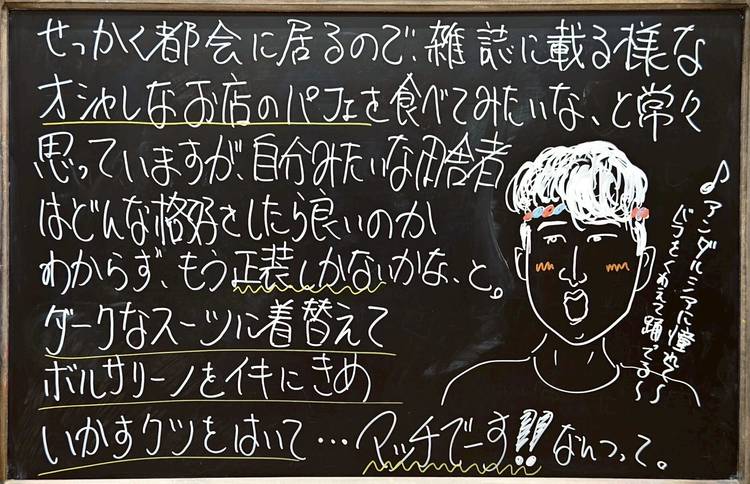 せっかく都会に居るので、雑誌に載る様な
オシャレなお店のパフェを食べてみたいな、と常々
思っていますが、自分みたいな田舎者
はどんな格好をしたら良いのか
わからず、もう正装しかないかな、と。
ダークなスーツに着替えて
ボルサリーノをイキにきめ
いかすクツをはいて…マッチでーす!!なんつって。
♪アンダルシアに憧れて
バラをくわえて踊ってる〜〜